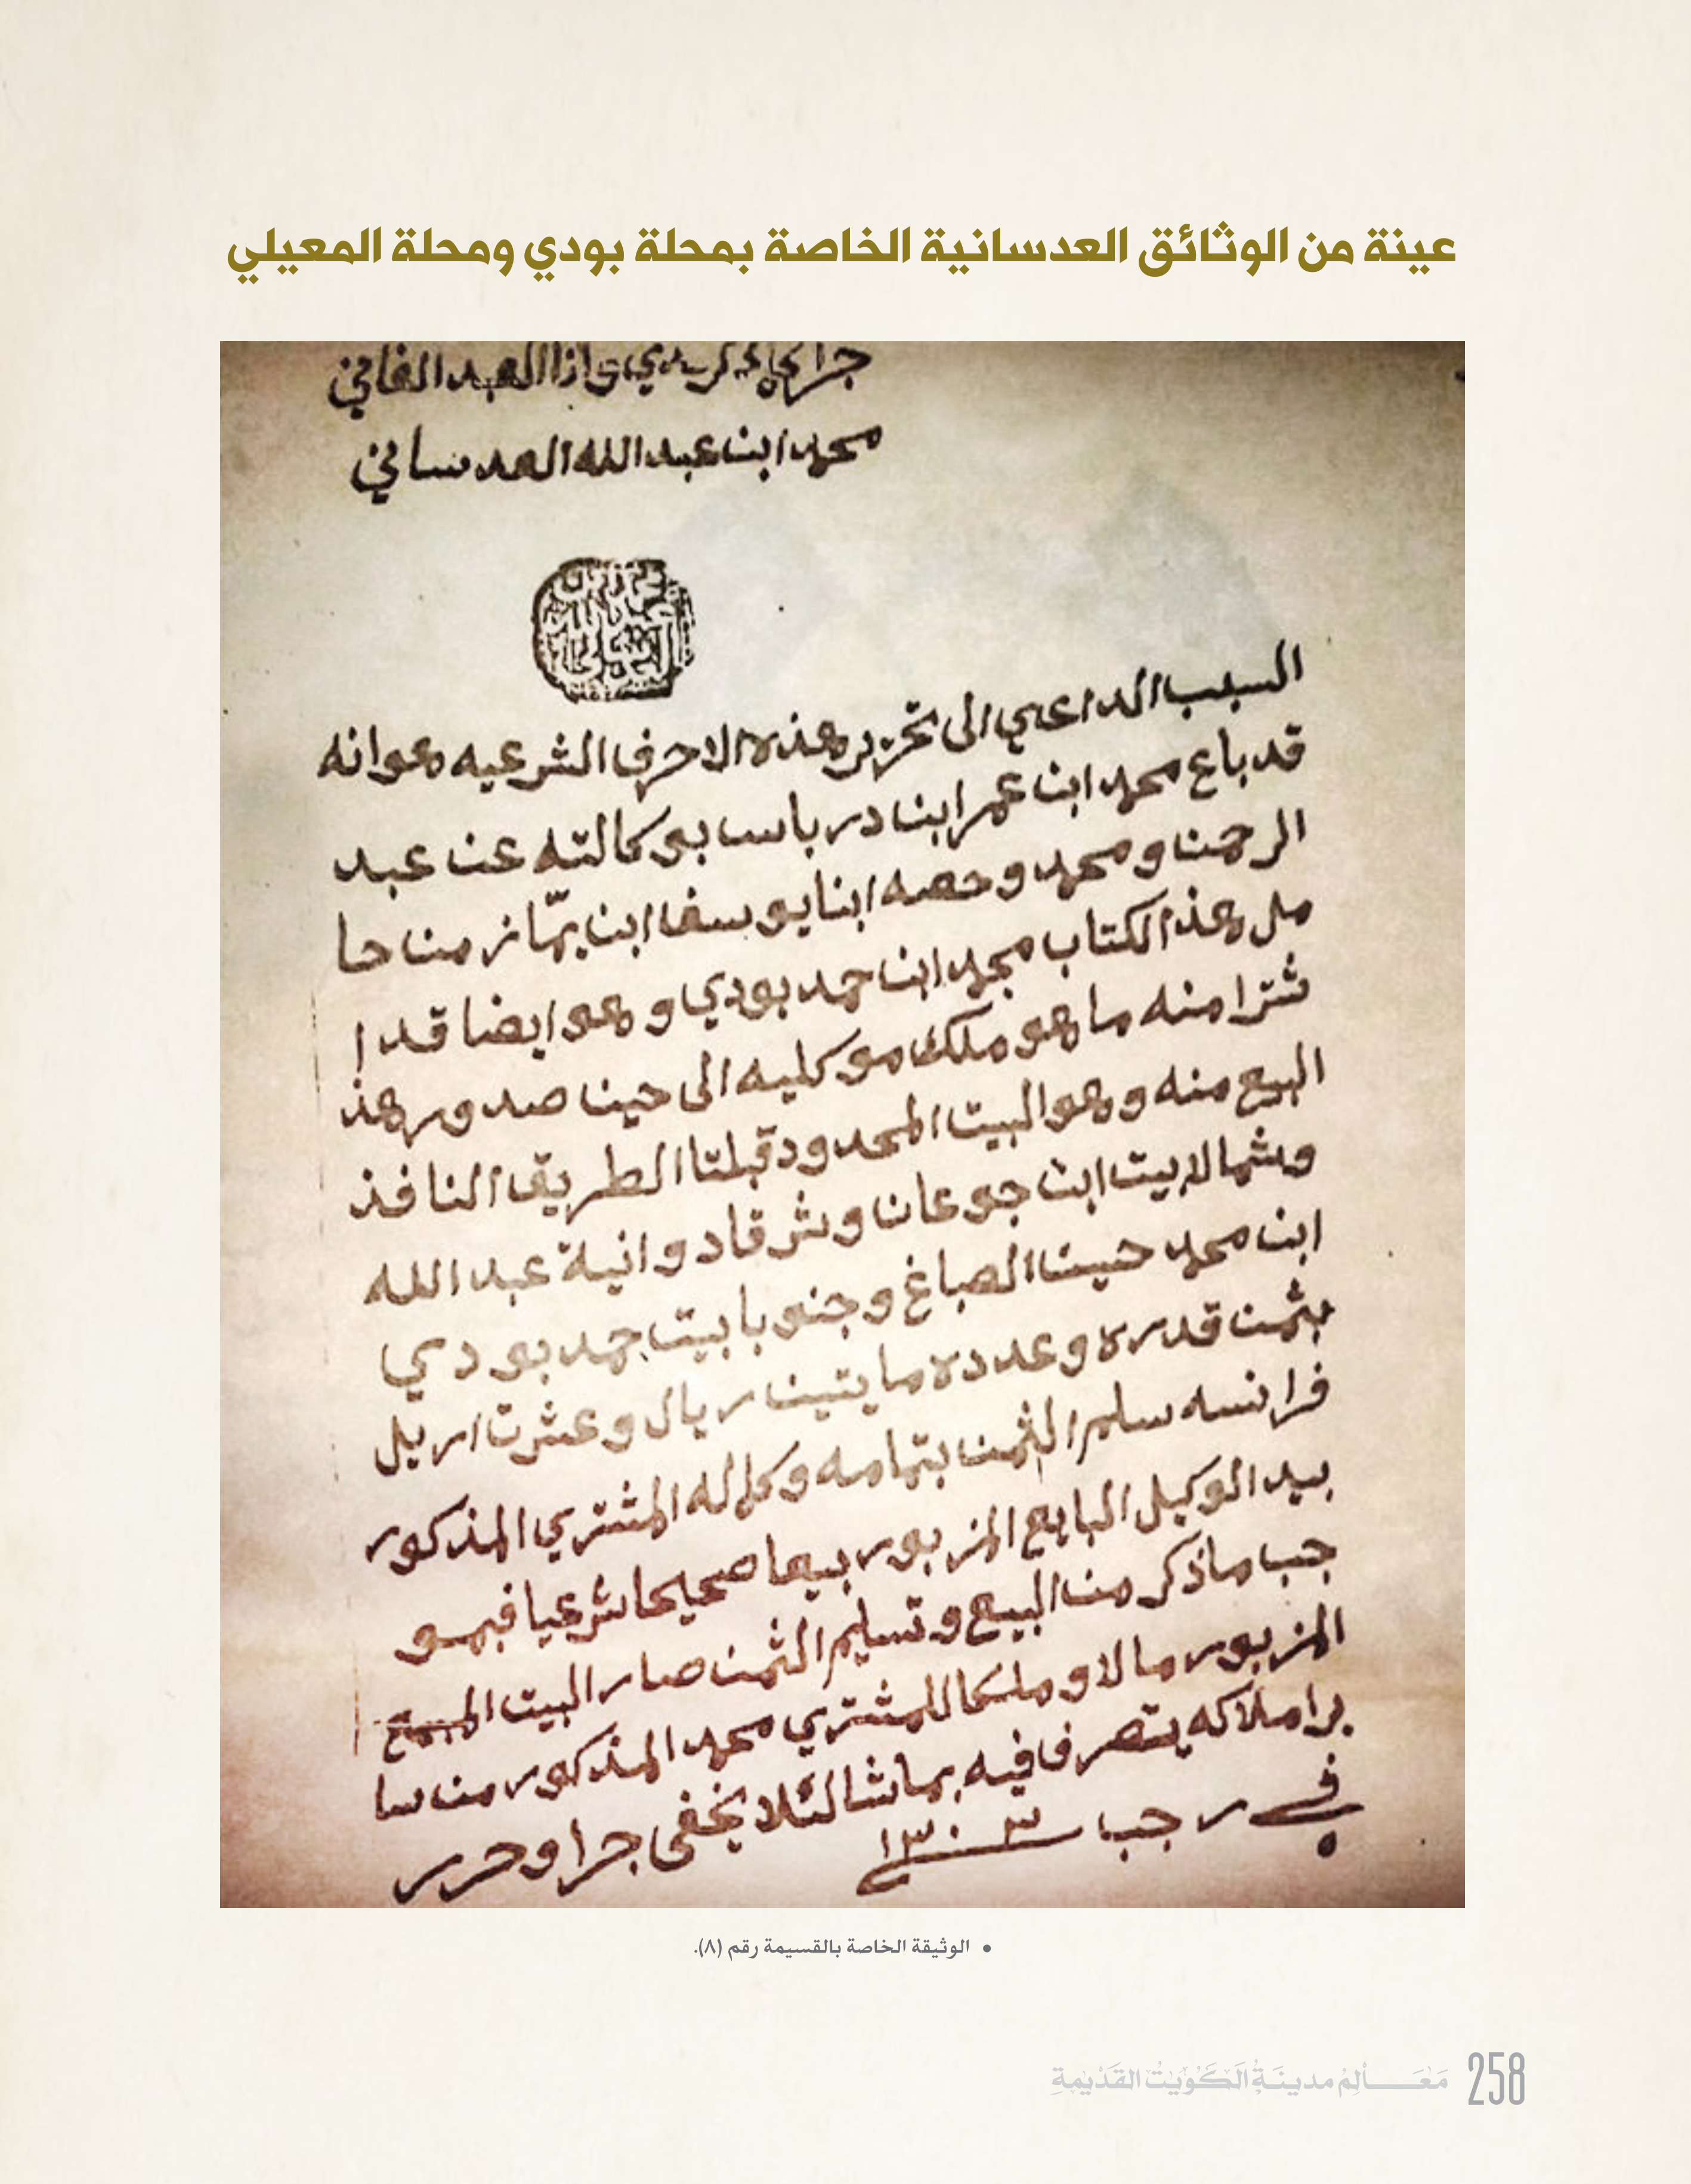 عينة من الوثائق العدسانية الخاصة بمحلة بودي ومحلة المعيلي
جرا لدي وانا العبد الفاني
محمد ابن عبد الله العدساني
السبب الداعي الى تحرير هذه الاحرف الشرعيه هو انه
قد باع محمد ابن عمر ابن درباس بوكالته عن عبد
الرحمن و محمد و حصه ابنا يوسف ابن من حا
مل هذ الكتاب محمد ابن حمد بودي و هو ايضا قد ا
شترا منه ما هو ملك موكليه الى حين صدور هذ
البيع منه و هو البيت المحدود قبلتا الطريق النافذ
وشمالا بيت ابن جوعان و شرقا ديوانية عبد الله
ابن محمد حسين الصباغ و جنوبا بيت حمد بودي
بثمن قدره وعدده مايتين ريال و عشرت اريل
فرانسه سلم الثمن بتمامه و كماله المشتري المذكور
بيد الوكيل البايع المزبور بيعا صحيحا شرعيا فبمو
جب ماذكر من البيع و تسليم الثمن صار البيت المبيع
المزبور مالا و ملكا للمشتري محمد المذكور من سا
ير املاكه يتصرف فيه بما شا لئلا يخفى جرا وحرر
في رجب سنة ١٣٠٣
• الوثيقة الخاصة بالقسيمة رقم (٨).
مَعَالِمُ مدينَةِ الكُوَيْتِ القَدْيمةِ 258